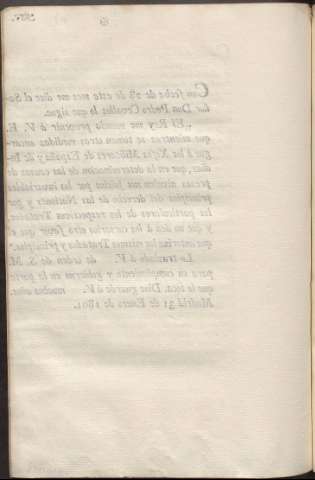 Con fecha de 28 de este mes me dice el Se-
ñor Don Pedro Cevallos lo que sigue.
„El Rey me manda prevenir á V. E.
que mientras se toman otras medidas encar-
gue á los Xefes Militares de España y de In-
dias, que en la determinacion de las causas de
presas nivelen sus juicios por los invariables
principios del derecho de las Naciones y por
los particulares de los respectivos Tratados,
y que no den á los corsarios otro fuero que el
que autorizan los mismos Tratados y principios."
Lo traslado á V. de órden de S. M.
para su cumplimiento y gobierno en la parte
que le toca. Dios guarde á V. muchos años.
Madrid 31 de Enero de 1801.